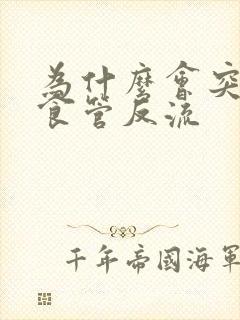 為什麼會突
食管反流
千年帝國海軍